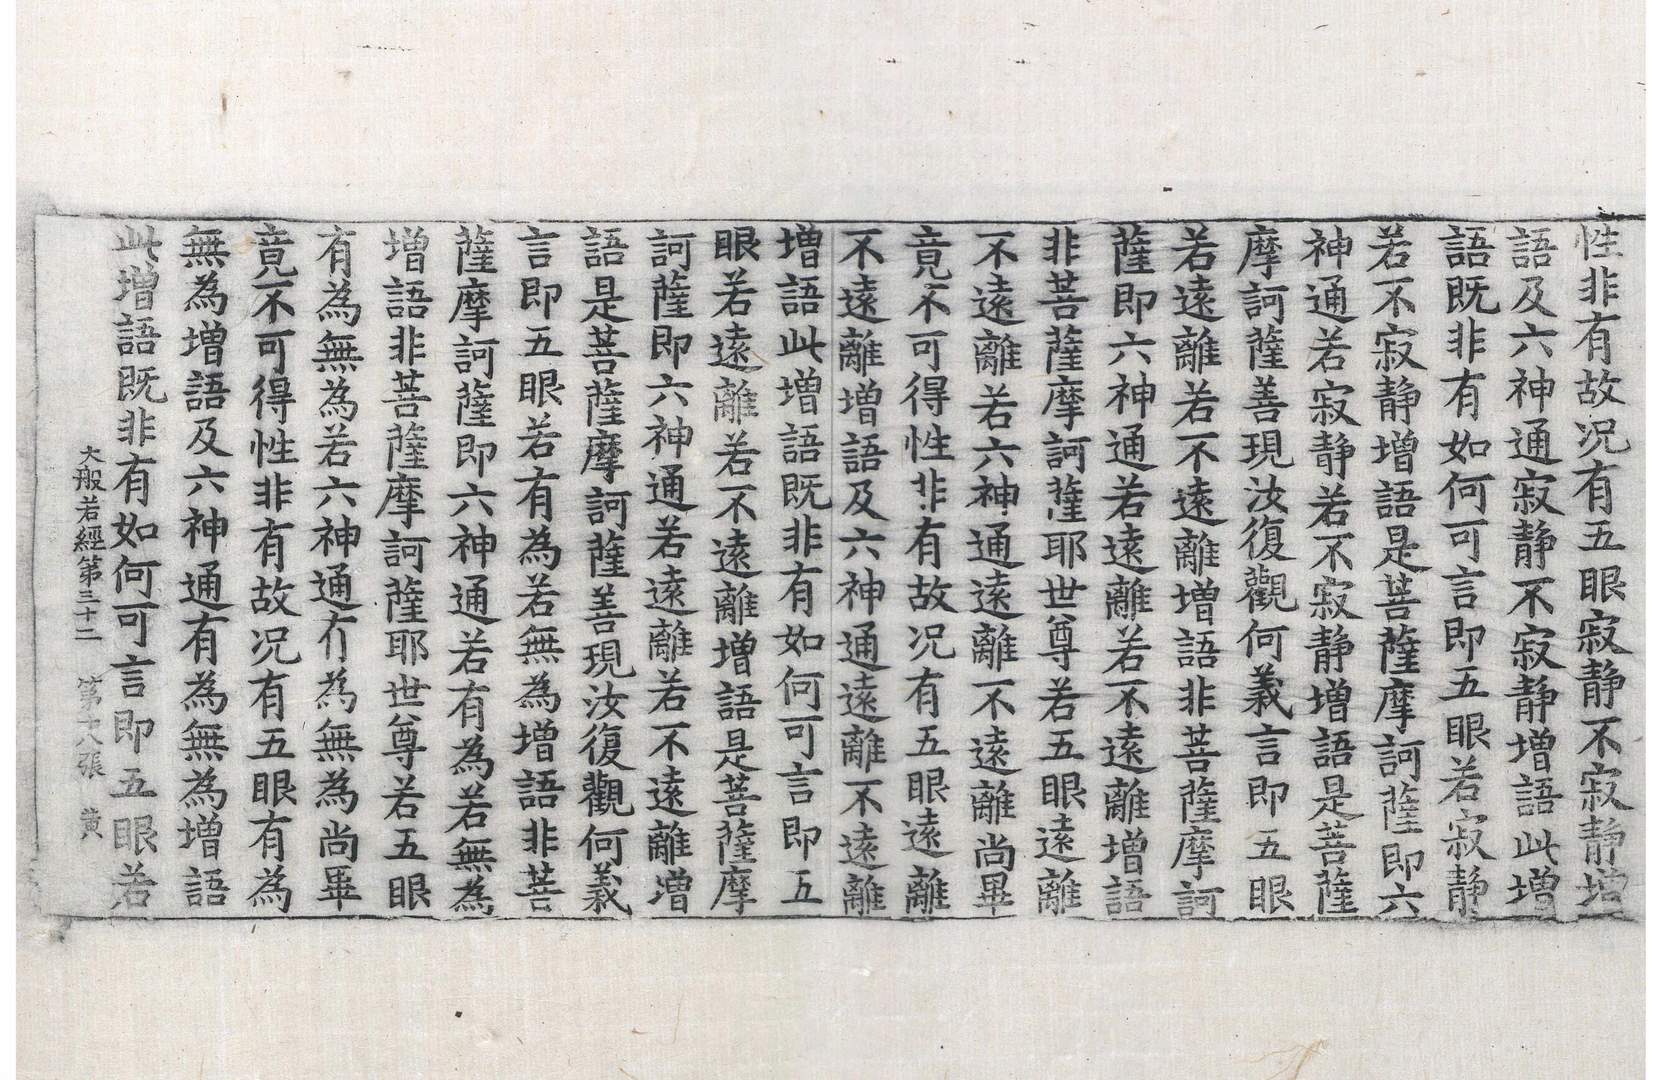 性非有故況有五眼寂静不寂静増
語及六神通寂静不寂静増語此増
語既非有如何可言即五眼若寂静
若不寂静増語是菩薩摩訶薩即六
神通若寂静若不寂静増語是菩薩
摩訶薩善現汝復觀何義言即五眼
若遠離若不遠離増語非菩薩摩訶
薩即六神通若遠離若不遠離増語
非菩薩摩訶薩耶世尊若五眼遠離
不遠離若六神通遠離不遠離尚畢
竟不可得性非有故況有五眼遠離
不遠離増語及六神通遠離不遠離
増語此増語既非有如何可言即五
眼若遠離若不遠離増語是菩薩摩
訶薩即六神通若遠離若不遠離増
語是菩薩摩訶薩善現汝復觀何義
言即五眼若有為若無為増語非菩
薩摩訶薩即六神通若有為若無為
増語非菩薩摩訶薩耶世尊若五眼
有為無為若六神通有為無為尚畢
竟不可得性非有故況有五眼有為
無為増語及六神通有為無為増語
此増語既非有如何可言即五眼若
大般若經第三十二　第十八張　黄